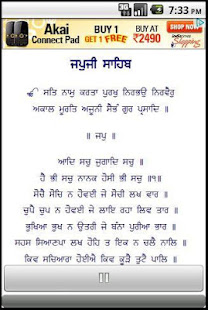 7:33 PM
Akai
Connect Pad
BUY 1
GET 1 FREE
BUY AT
₹2490
SHOP NOW
Shopping
ਜਪੁਜੀ ਸਾਹਿਬ
ੴ ਸਤਿ ਨਾਮੁ ਕਰਤਾ ਪੁਰਖੁ ਨਿਰਭਉ ਨਿਰਵੈਰੁ
ਅਕਾਲ ਮੂਰਤਿ ਅਜੂਨੀ ਸੈਭੰ ਗੁਰ ਪ੍ਰਸਾਦਿ ॥
॥ ਜਪੁ ॥
ਆਦਿ ਸਚੁ ਜੁਗਾਦਿ ਸਚੁ ॥
ਹੈ ਭੀ ਸਚੁ ਨਾਨਕ ਹੋਸੀ ਭੀ ਸਚੁ ॥੧॥
ਸੋਚੈ ਸੋਚਿ ਨ ਹੋਵਈ ਜੇ ਸੋਚੀ ਲਖ ਵਾਰ ॥
ਚੁਪੈ ਚੁਪ ਨ ਹੋਵਈ ਜੇ ਲਾਇ ਰਹਾ ਲਿਵ ਤਾਰ ॥
ਭੁਖਿਆ ਭੁਖ ਨ ਉਤਰੀ ਜੇ ਬੰਨਾ ਪੁਰੀਆ ਭਾਰ ॥
ਸਹਸ ਸਿਆਣਪਾ ਲਖ ਹੋਹਿ ਤ ਇਕ ਨ ਚਲੈ ਨਾਲਿ ॥
ਕਿਵ ਸਚਿਆਰਾ ਹੋਈਐ ਕਿਵ ਕੂੜੈ ਤੁਟੈ ਪਾਲਿ ॥